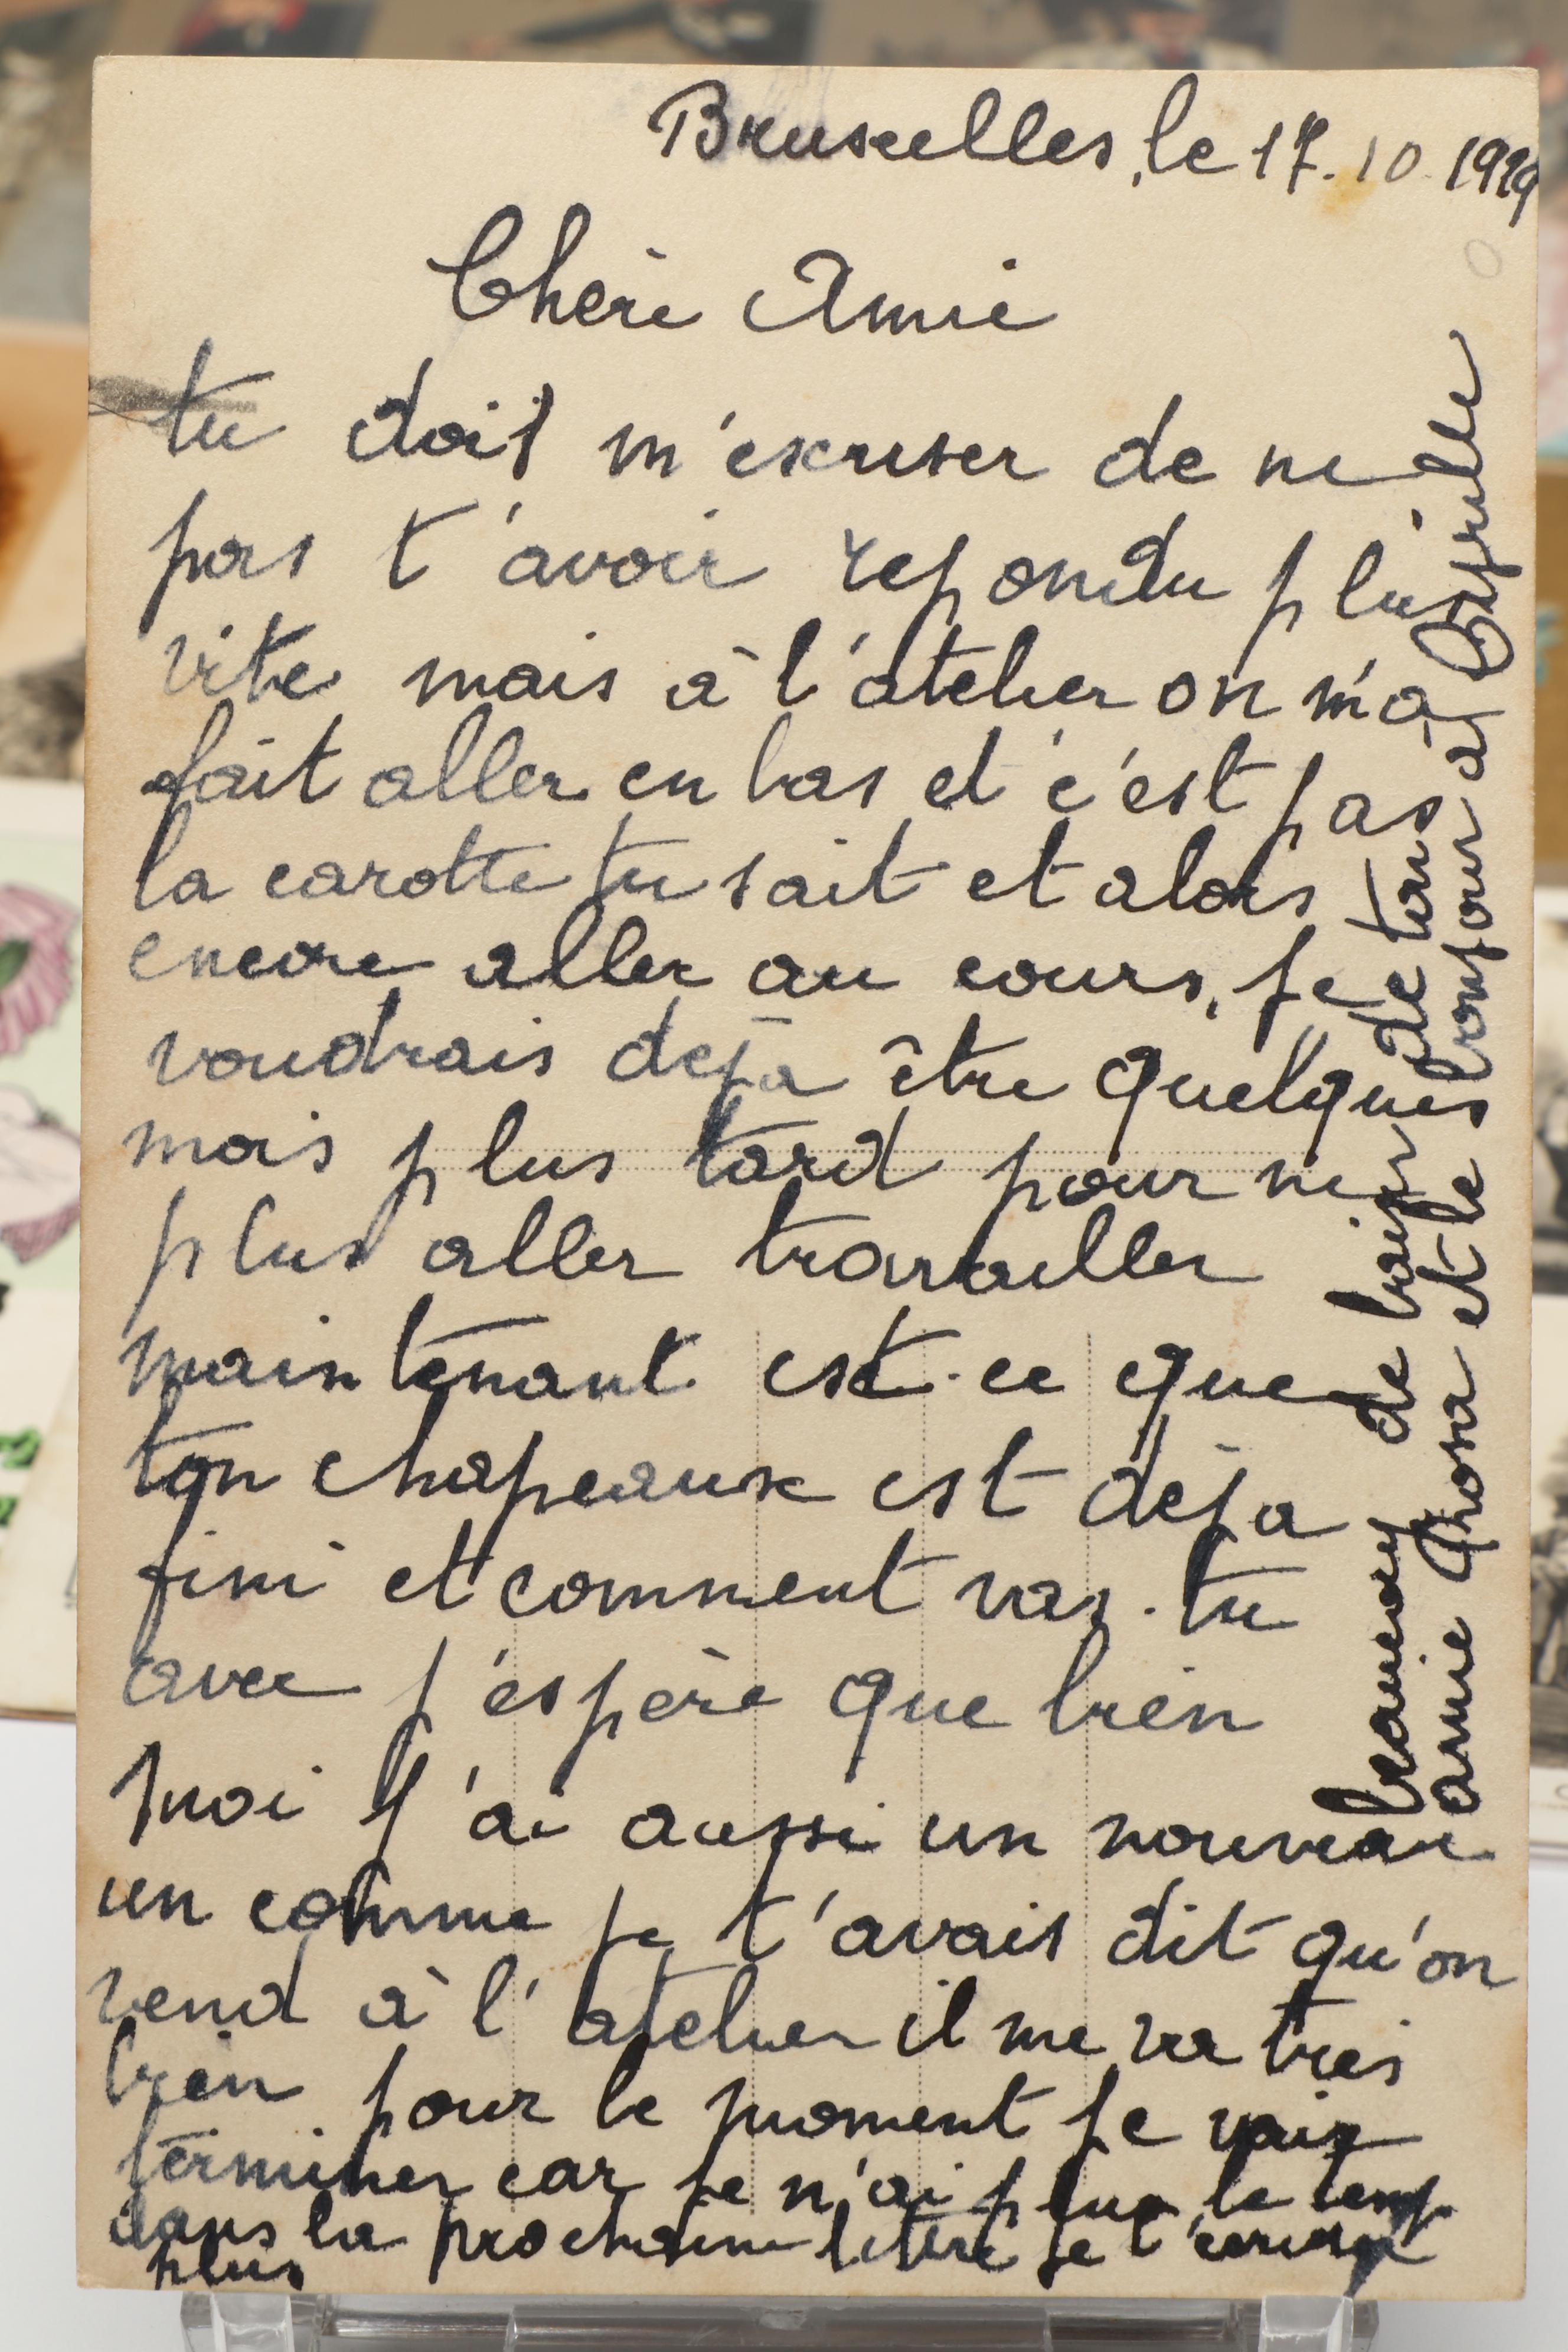 Bruxelles, le 17.10.1929
Chère Amie
tu doit m'excuser de ne
pas t'avoir repondu plus
vite mais à l'atelier on m'a
fait aller en bas et c'est pas
la carotte tu sait et alors
encore aller au cours, je
voudrais deja être quelques
mois plus tard pour ne
plus aller travailler
maintenant est-ce que
ton chapeaux est déja
fini et comment vas-tu
avec j'espère que bien
moi j'ai aussi un nouveau
un comme je t'avais dit qu'on
vend à l'atelier il me va tres
bien pour le moment je vais
terminer car je n'ai plus le temp
dans la prochaine lettre je t'
plus
beaucoup de baiser de ton
amie Rosa et le bonjour à